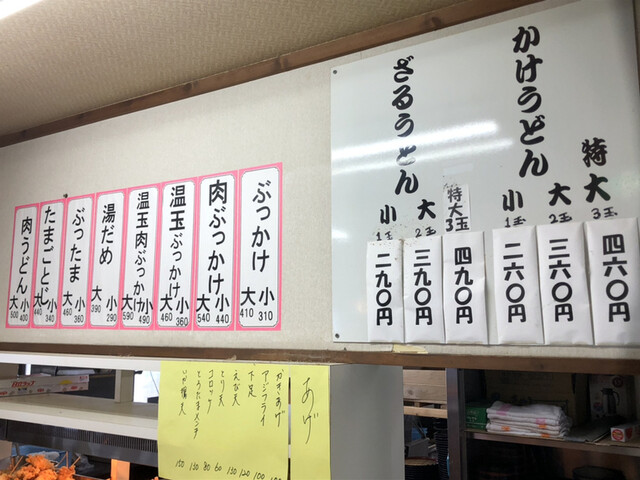 かけうどん
特大 3玉 四六〇円
大 2玉 三六〇円
小 1玉 二六〇円
ざるうどん
特大 3玉 四九〇円
大 2玉 三九〇円
小 1玉 二九〇円
ぶっかけ 小 310 大 410
肉ぶっかけ 小 440 大 540
温玉ぶっかけ 小 360 大 460
温玉肉ぶっかけ 小 490 大 590
湯だめ 小 290 大 390
ぶったま 小 360 大 460
たまごとじ 小 340 大 440
肉うどん 小 400 大 500
あげ
アジフライ 100
下足 120
えび天 130
とり天 60
コロッケ 80